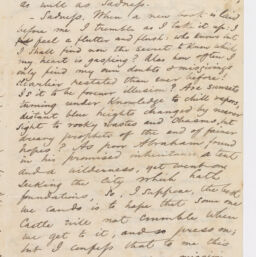 as well as Sadness.
- Sadness. When a new book is laid
before me I tremble as I take it up. I
feel a flutter and flush: who knows but
I shall find now the secret to know which
my heart is gasping? Alas how often I
only find my own doubts & misgivings
drearily restated than ever before!
Is it to be forever illusion? Are sunsets
turning under knowledge to chill vapors
distant blue heights changed by nearer
sight to rocky wastes and chasms, but
dreary prophets of the end of fairer
hopes? As poor Abraham found
in his promised inheritance a tent
and a wilderness, yet went on
seeking the City which hath
foundations, So, I suppose, the best
we can do is to hope that some one
Castle will not crumble when
we get to it, and so press on;
but I confess that to me this